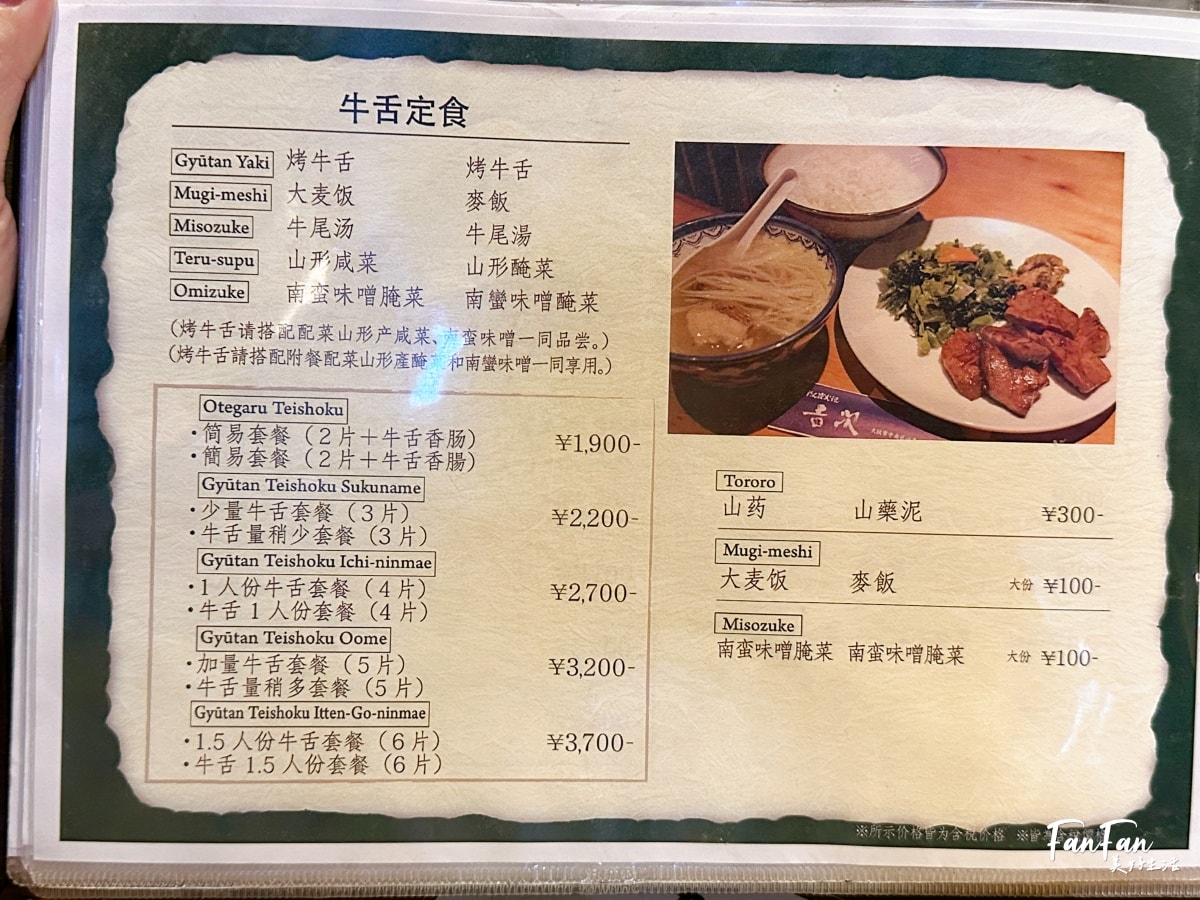 牛舌定食
Gyūtan Yaki 烤牛舌 烤牛舌
Mugi-meshi 大麦饭 麥飯
Misozuke 牛尾汤 牛尾湯
Teru-supu 山形咸菜 山形醃菜
Omizuke 南蛮味噌腌菜 南蠻味噌醃菜
(烤牛舌请搭配配菜山形产咸菜、南蛮味噌一同品尝。)
(烤牛舌請搭配附餐配菜山形產醃菜和南蠻味噌一同享用。)
Otegaru Teishoku
・简易套餐(2片＋牛舌香肠)
・簡易套餐(2片＋牛舌香腸)
¥1,900-
Gyūtan Teishoku Sukuname
・少量牛舌套餐(3片)
・牛舌量稍少套餐(3片)
¥2,200-
Gyūtan Teishoku Ichi-ninmae
・1人份牛舌套餐(4片)
・牛舌1人份套餐(4片)
¥2,700-
Gyūtan Teishoku Oome
・加量牛舌套餐(5片)
・牛舌量稍多套餐(5片)
¥3,200-
Gyūtan Teishoku Itten-Go-ninmae
・1.5人份牛舌套餐(6片)
・牛舌1.5人份套餐(6片)
¥3,700-
吉次
Tororo
山药 山藥泥 ¥300-
Mugi-meshi
大麦饭 麥飯 大份 ¥100-
Misozuke
南蛮味噌腌菜 南蛮味噌腌菜 大份 ¥100-
※所示价格皆为含税价格 ※皆
FanFan
美好生活